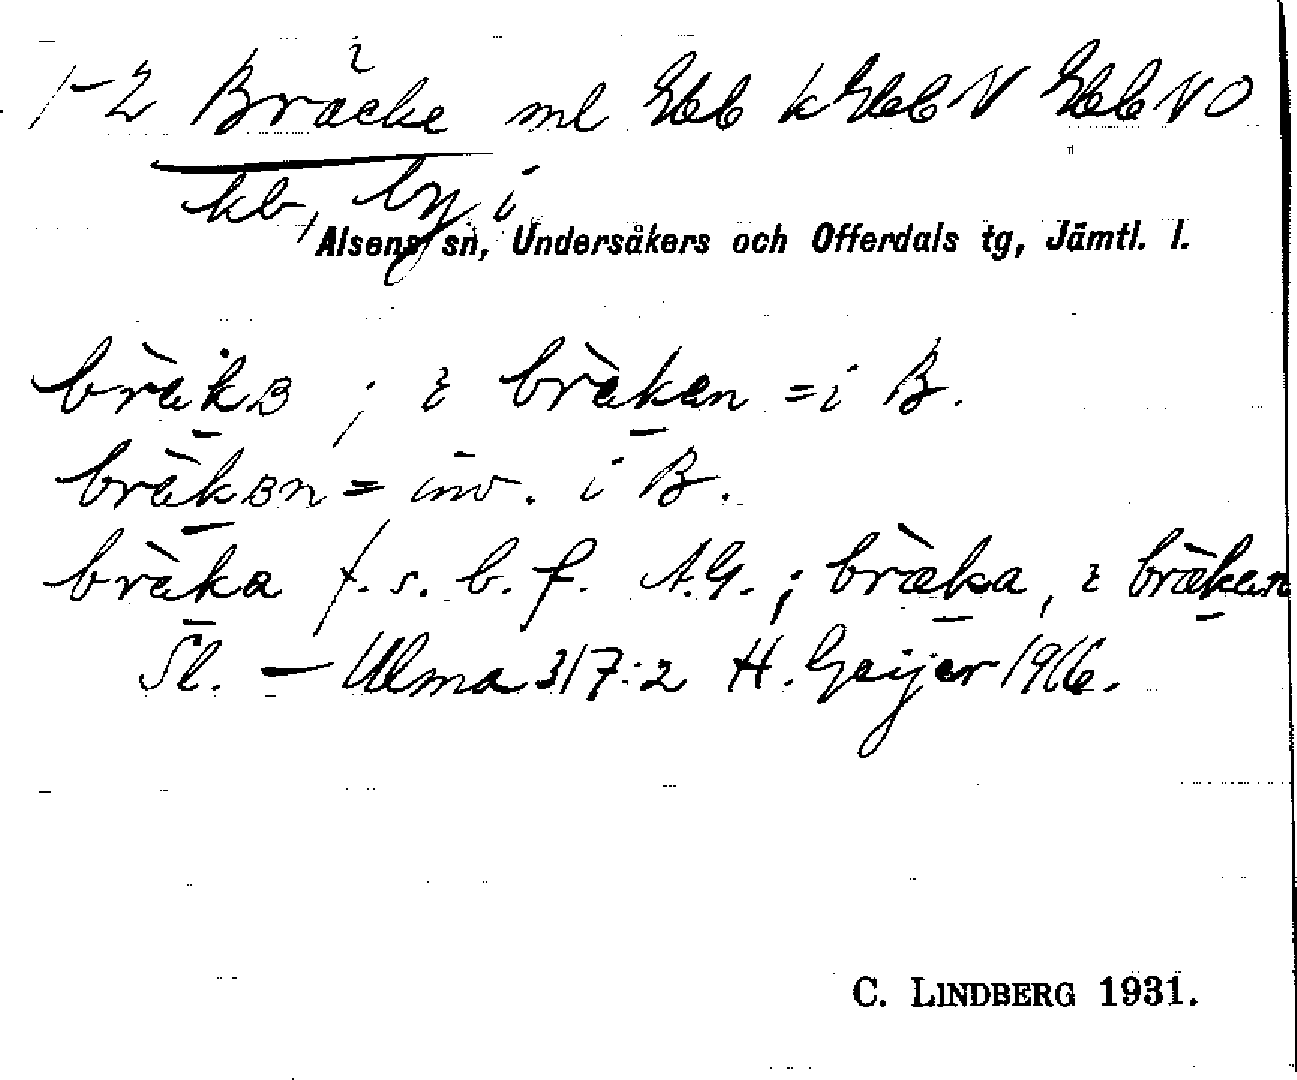 1-2 Bräcke ml Ebb k Ebb V Ebb V O
kb, by i
Alsens sn, Undersåkers och Offerdals tg, Jämtl. l.
bràkB ; ɛ bràken = i B.
bràkBn = inv. i B.
bràka f. s. b. f. A.G.; bràka, ɛ bràken
Sl. — Ulma 317:2 H. Geijer 1916.
C. LINDBERG 1931.